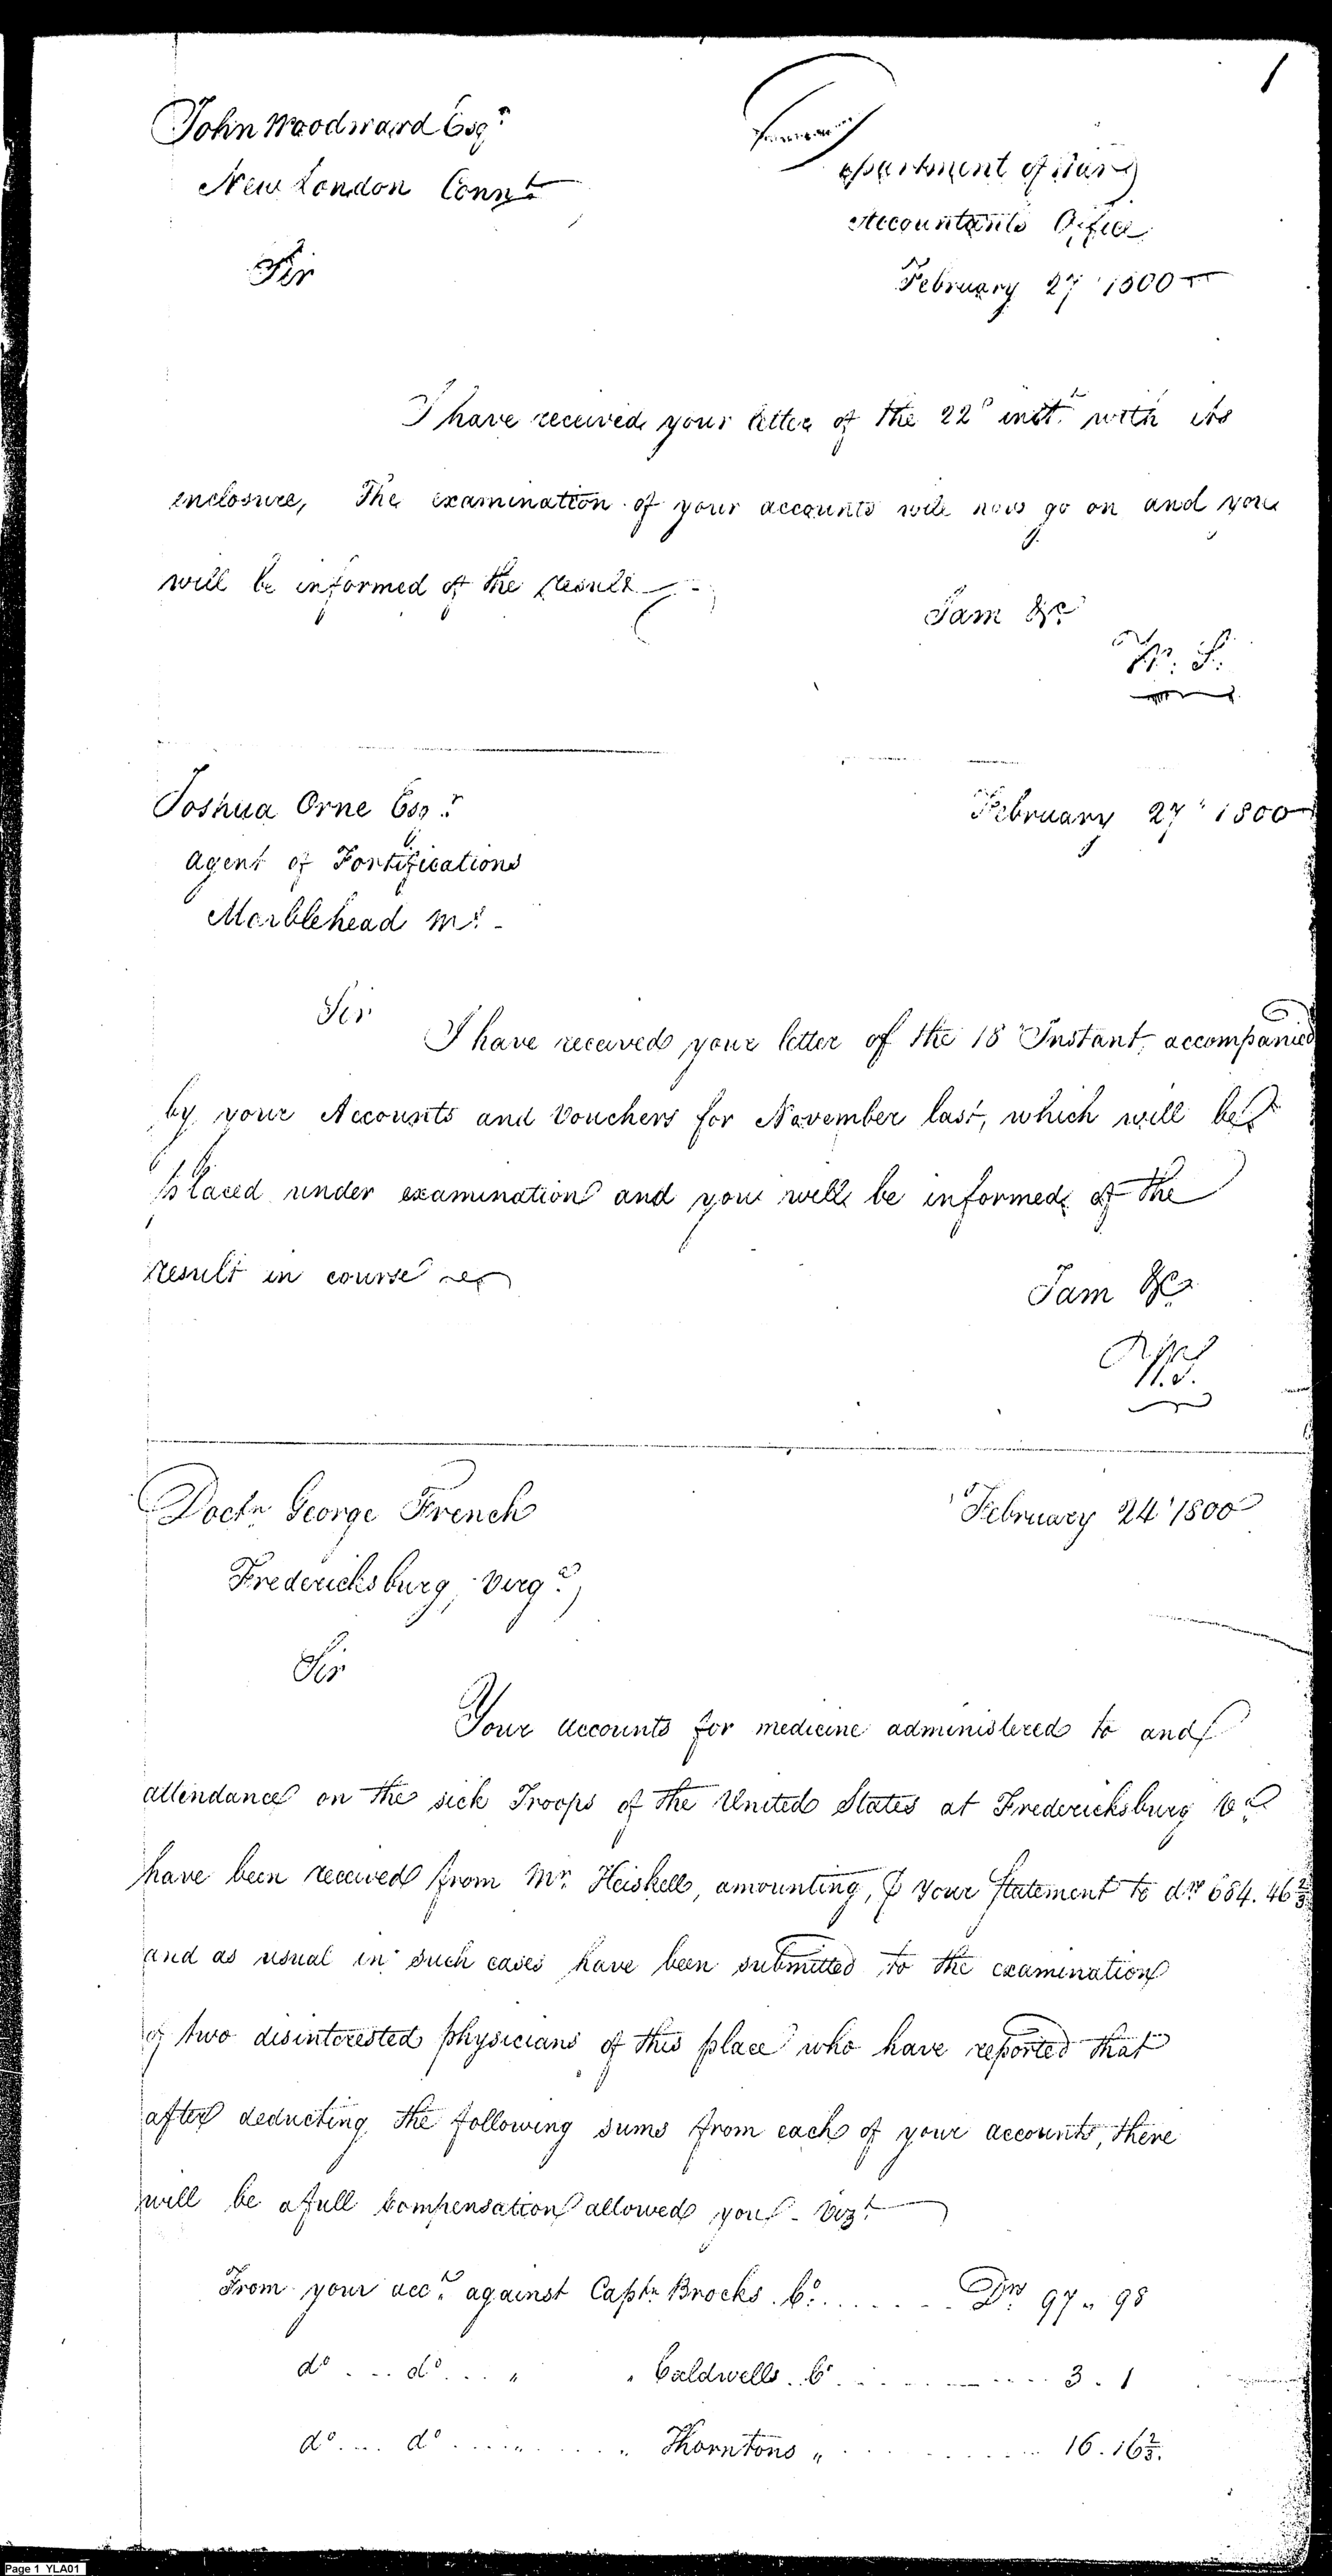 1
John Woodward Esqr
New London Connt
Department of War
Accountants Office
February 27 1800
Sir
I have received your letter of the 22d inst. with its
enclosure, The examination of your accounts will now go on and you
will be informed of the result
I am &c
W. S.
Joshua Orne Esqr
February 27 1800
Agent of Fortifications
Marblehead Ms.
Sir
I have received your letter of the 18 Instant, accompanied
by your Accounts and Vouchers for November last, which will be
placed under examination and you will be informed of the
result in course
I am &c
W. S.
Doctr George French
February 24 1800
Fredericksburg, Virga
Sir
Your accounts for medicine administered to and
attendance on the sick Troops of the United States at Fredericksburg Va
have been received from Mr. Heiskell, amounting, ⅌ Your Statement to drs 684. 46 2/3
and as usual in such cases have been submitted to the examination
of two disinterested physicians of this place who have reported that
after deducting the following sums from each of your accounts, there
will be a full compensation allowed you - Vizt
From your acct. against Captn Brocks Co. . . . . . . Drs 97 " 98
do . . . do . . . " " Caldwells Co . . . . . . 3 . 1
do . . . do . . . . " . . . . " Thorntons " . . . . . . 16 . 16 2/3.
Page 1 YLA01